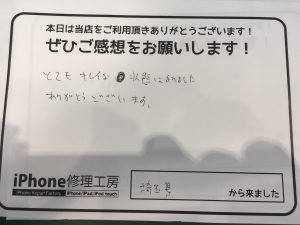 本日は当店をご利用頂きありがとうございます！
ぜひご感想をお願いします！
とても キレイな 状態になりました
ありがとう ございます。
iPhone修理工房
iPhone Repair Factory iPhone/iPad/iPod touch
埼玉県 から来ました